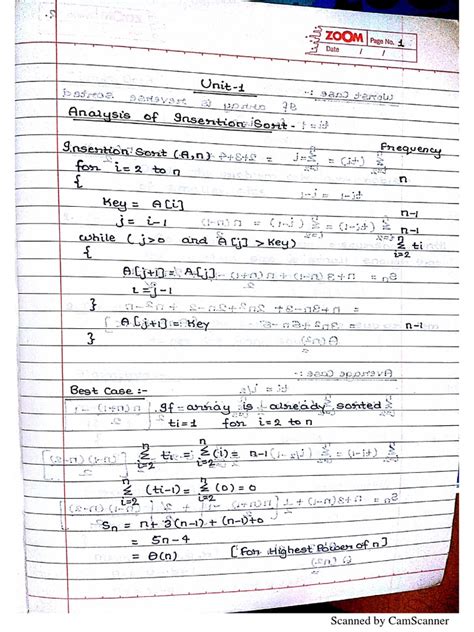 ZOOM Page No. 1
Date / /
Unit-1
Analysis of Insertion Sort-
Insertion Sort (A,n) Frequency
for i=2 to n n
{
Key = A[i] n-1
j = i-1 n-1
while (j>0 and A[j] > Key) n∑i=2 ti
{
A[j+1] = A[j]
i=j-1
}
A[j+1] = Key n-1
}
Best Case :-
If array is already sorted
ti=1 for i=2 to n
n∑i=2 ti = n∑i=2 (i) = n-1
n∑i=2 (ti-1) = n∑i=2 (0) = 0
Sn = n+ 3(n-1) + (n-1)+0
= 5n-4
= θ(n) [For Highest Power of n]
Scanned by CamScanner